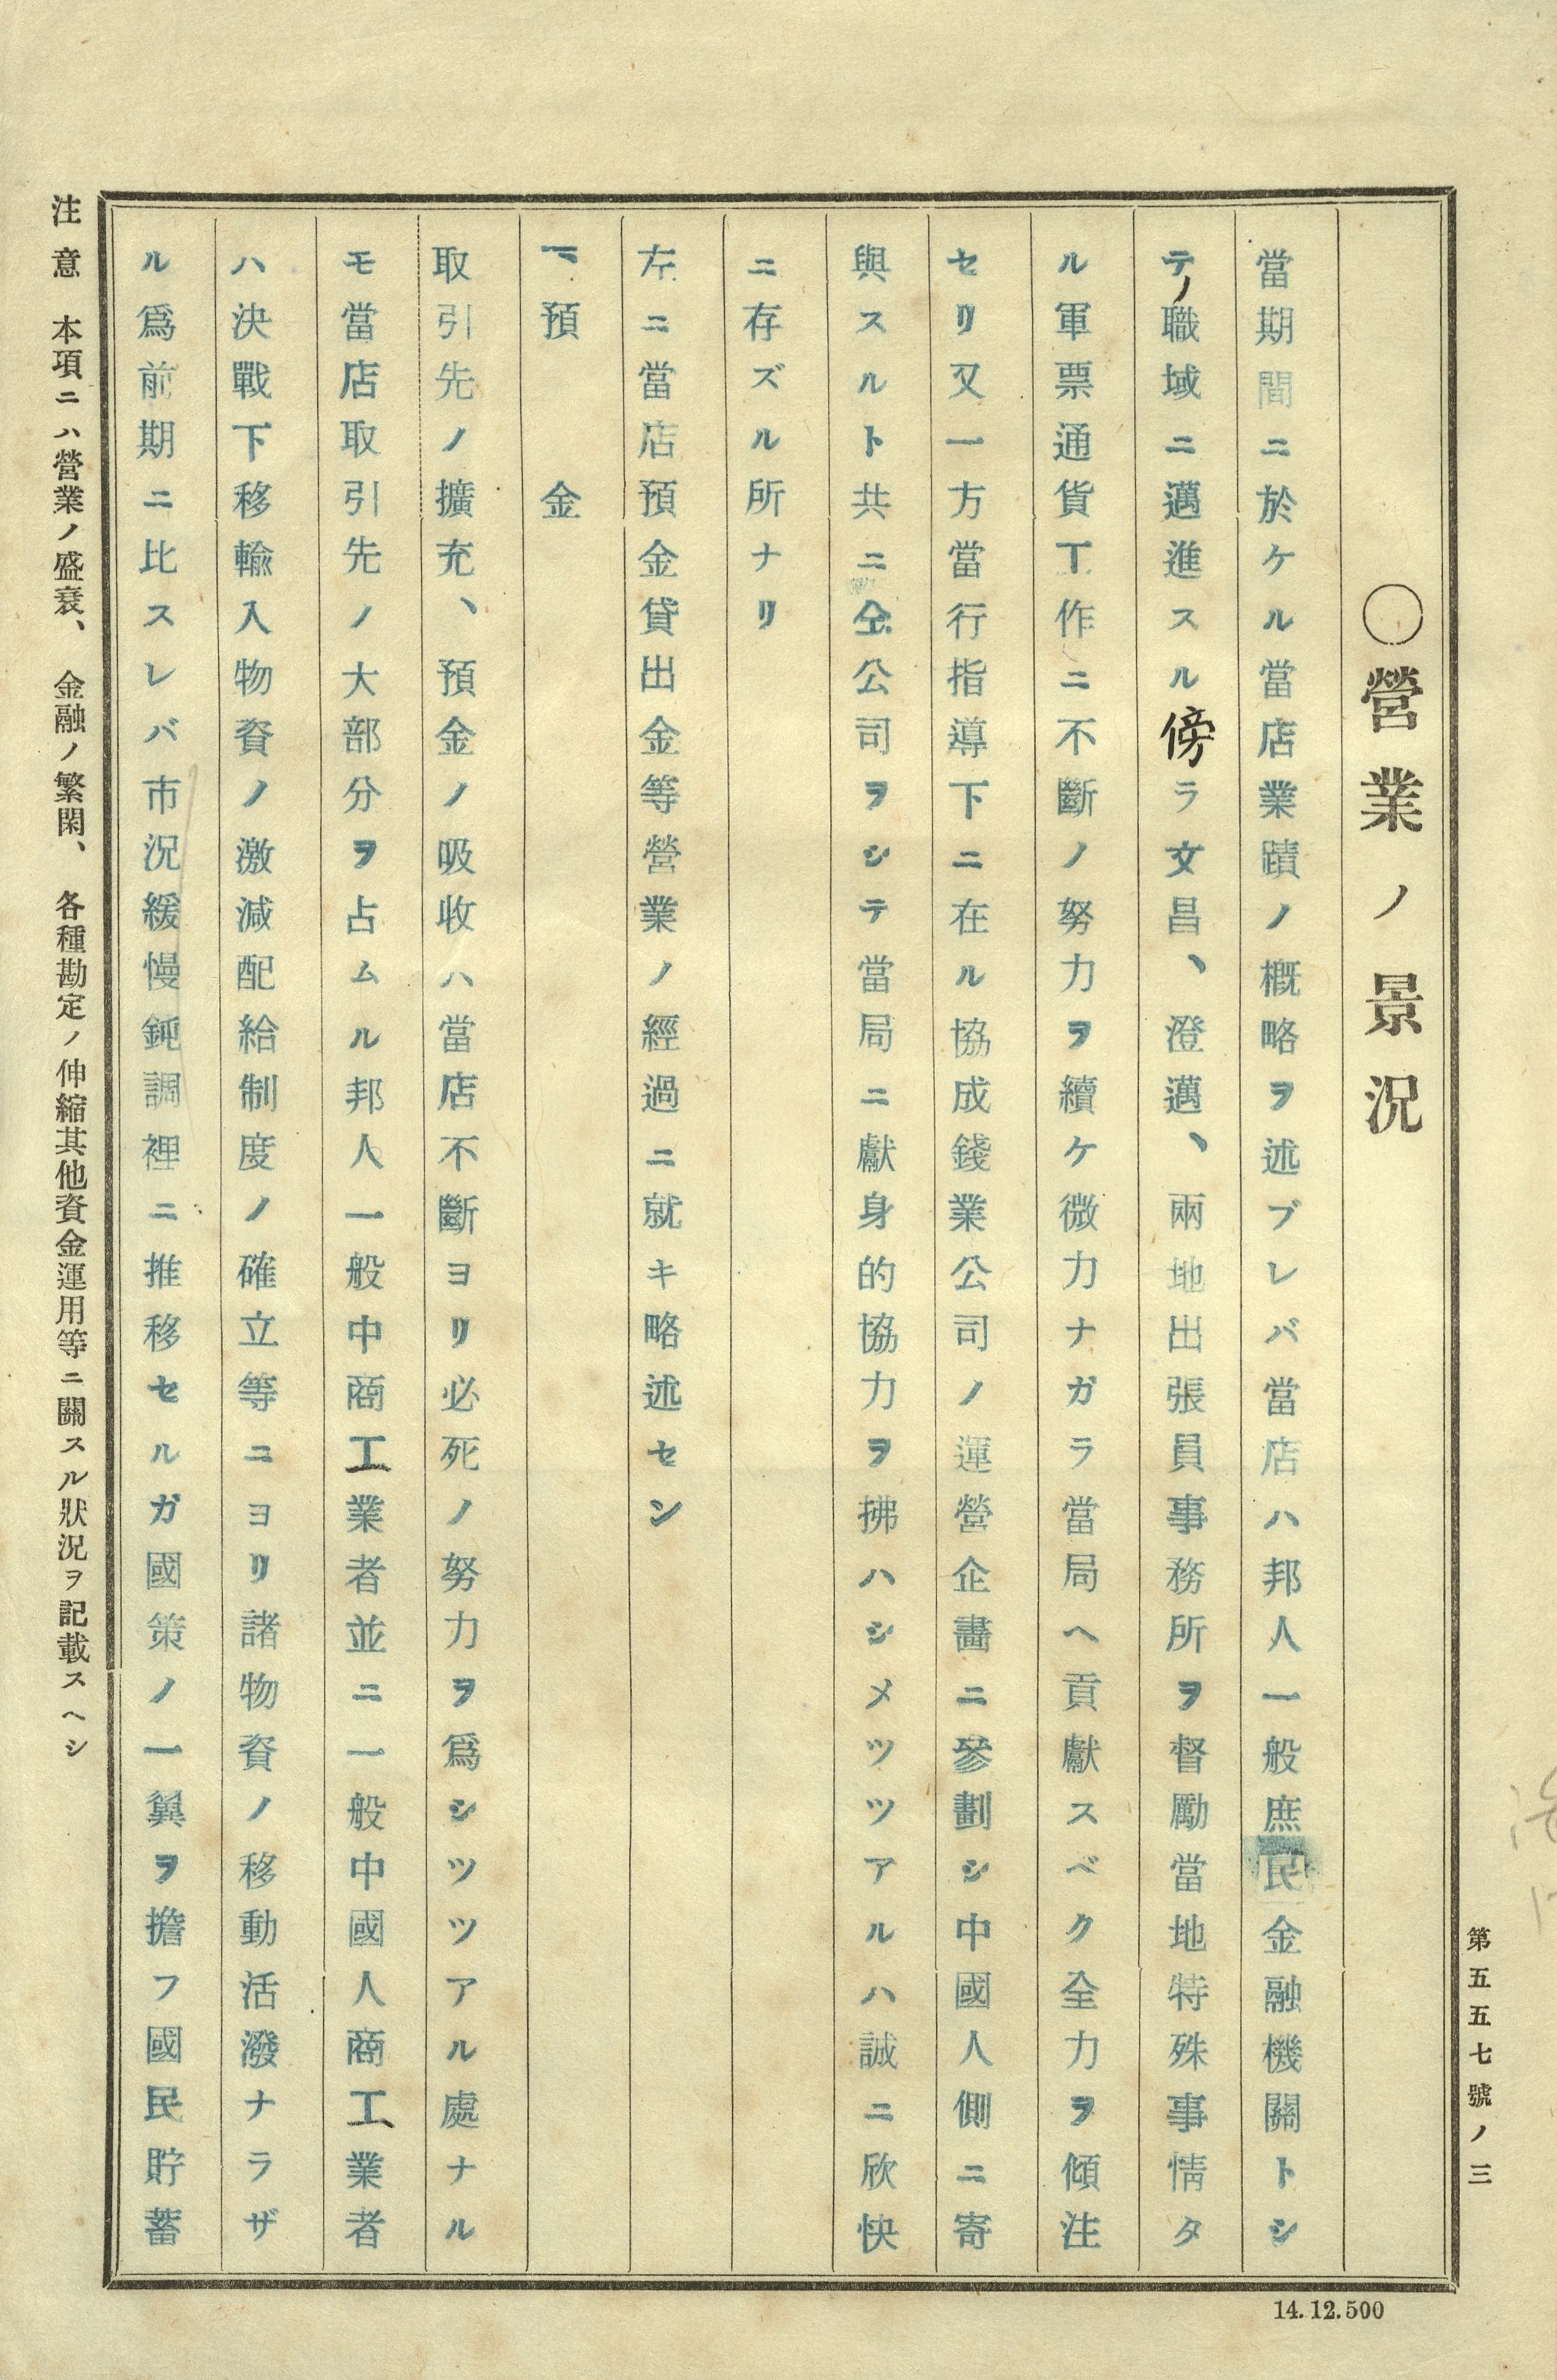 第五五七號ノ三
○營業ノ景況
當期間ニ於ケル當店業蹟ノ概略ヲ述ブレバ當店ハ邦人一般庶民金融機關トシ
テノ職域ニ邁進スル傍ラ文昌、澄邁、兩地出張員事務所ヲ督勵當地特殊事情タ
ル軍票通貨工作ニ不斷ノ努力ヲ續ケ微力ナガラ當局ヘ貢獻スベク全力ヲ傾注
セリ又一方當行指導下ニ在ル協成錢業公司ノ運營企畫ニ參劃シ中國人側ニ寄
與スルト共ニ仝公司ヲシテ當局ニ獻身的協力ヲ拂ハシメツツアルハ誠ニ欣快
ニ存ズル所ナリ
左ニ當店預金貸出金等營業ノ經過ニ就キ略述セン
一、預金
取引先ノ擴充、預金ノ吸收ハ當店不斷ヨリ必死ノ努力ヲ爲シツツアル處ナル
モ當店取引先ノ大部分ヲ占ムル邦人一般中商工業者並ニ一般中國人商工業者
ハ決戰下移輸入物資ノ激減配給制度ノ確立等ニヨリ諸物資ノ移動活潑ナラザ
ル爲前期ニ比スレバ市況緩慢鈍調裡ニ推移セルガ國策ノ一翼ヲ擔フ國民貯蓄
注意 本項ニハ營業ノ盛衰、金融ノ繁閑、各種勘定ノ伸縮其他資金運用等ニ關スル狀況ヲ記載スヘシ
14.12.500